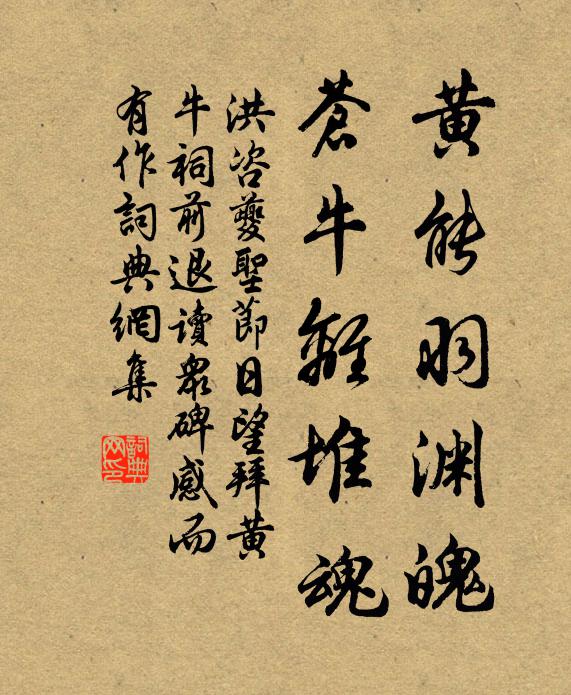 黄能羽渊魄
蒼牛離堆魂
洪咨夔聖節日望拜黄
牛祠前退讀衆碑感而
有作詞典網集
詞典网印